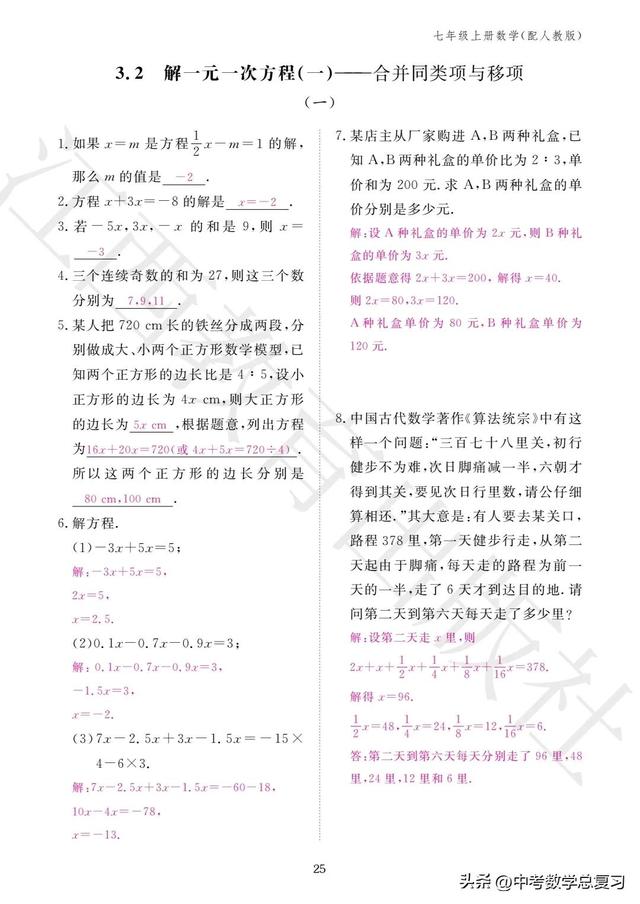 七年级上册数学(配人教版)
3.2 解一元一次方程(一)——合并同类项与移项
(一)
1.如果 x=m 是方程 1/2 x-m=1 的解,
那么 m 的值是 -2 .
2.方程 x+3x=-8 的解是 x=-2 .
3.若-5x,3x,-x 的和是 9,则 x=
-3 .
4.三个连续奇数的和为 27,则这三个数
分别为 7,9,11 .
5.某人把 720 cm 长的铁丝分成两段,分
别做成大、小两个正方形数学模型,已
知两个正方形的边长比是 4∶5,设小
正方形的边长为 4x cm,则大正方形
的边长为 5x cm ,根据题意,列出方程
为16x+20x=720(或 4x+5x=720÷4) .
所以这两个正方形的边长分别是
80 cm,100 cm .
6.解方程.
(1)-3x+5x=5;
解:-3x+5x=5,
2x=5,
x=2.5.
(2)0.1x-0.7x-0.9x=3;
解:0.1x-0.7x-0.9x=3,
-1.5x=3,
x=-2.
(3)7x-2.5x+3x-1.5x=-15×
4-6×3.
解:7x-2.5x+3x-1.5x=-60-18,
10x-4x=-78,
x=-13.
7.某店主从厂家购进 A,B 两种礼盒,已
知 A,B 两种礼盒的单价比为 2∶3,单
价和为 200 元.求 A,B 两种礼盒的单
价分别是多少元.
解:设 A 种礼盒的单价为 2x 元,则 B 种礼
盒的单价为 3x 元.
依据题意得 2x+3x=200, 解得 x=40.
则 2x=80,3x=120.
A 种礼盒单价为 80 元,B 种礼盒单价为
120 元.
8.中国古代数学著作《算法统宗》中有这
样一个问题:“三百七十八里关,初行
健步不为难,次日脚痛减一半,六朝才
得到其关,要见次日行里数,请公仔细
算相还.”其大意是:有人要去某关口,
路程 378 里,第一天健步行走,从第二
天起由于脚痛,每天走的路程为前一
天的一半,走了 6 天才到达目的地.请
问第二天到第六天每天走了多少里?
解:设第二天走 x 里,则
2x+x+1/2 x+1/4 x+1/8 x+1/16 x=378.
解得 x=96.
1/2 x=48,1/4 x=24,1/8 x=12,1/16 x=6.
答:第二天到第六天每天分别走了 96 里,48
里,24 里,12 里和 6 里.
江西教育出版社
25
头条 @中考数学总复习